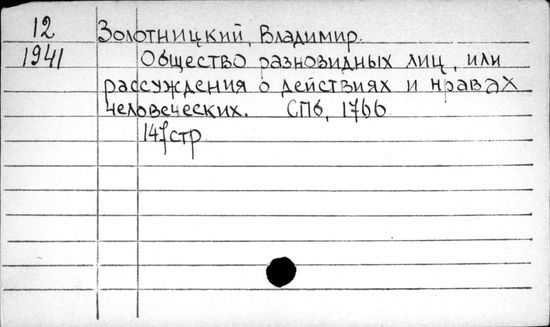 12 Золотницкий, Владимир.
1941 Общество разновидных лиц, или
рассуждения о действиях и нравах
человеческих. СПб, 1766
147стр